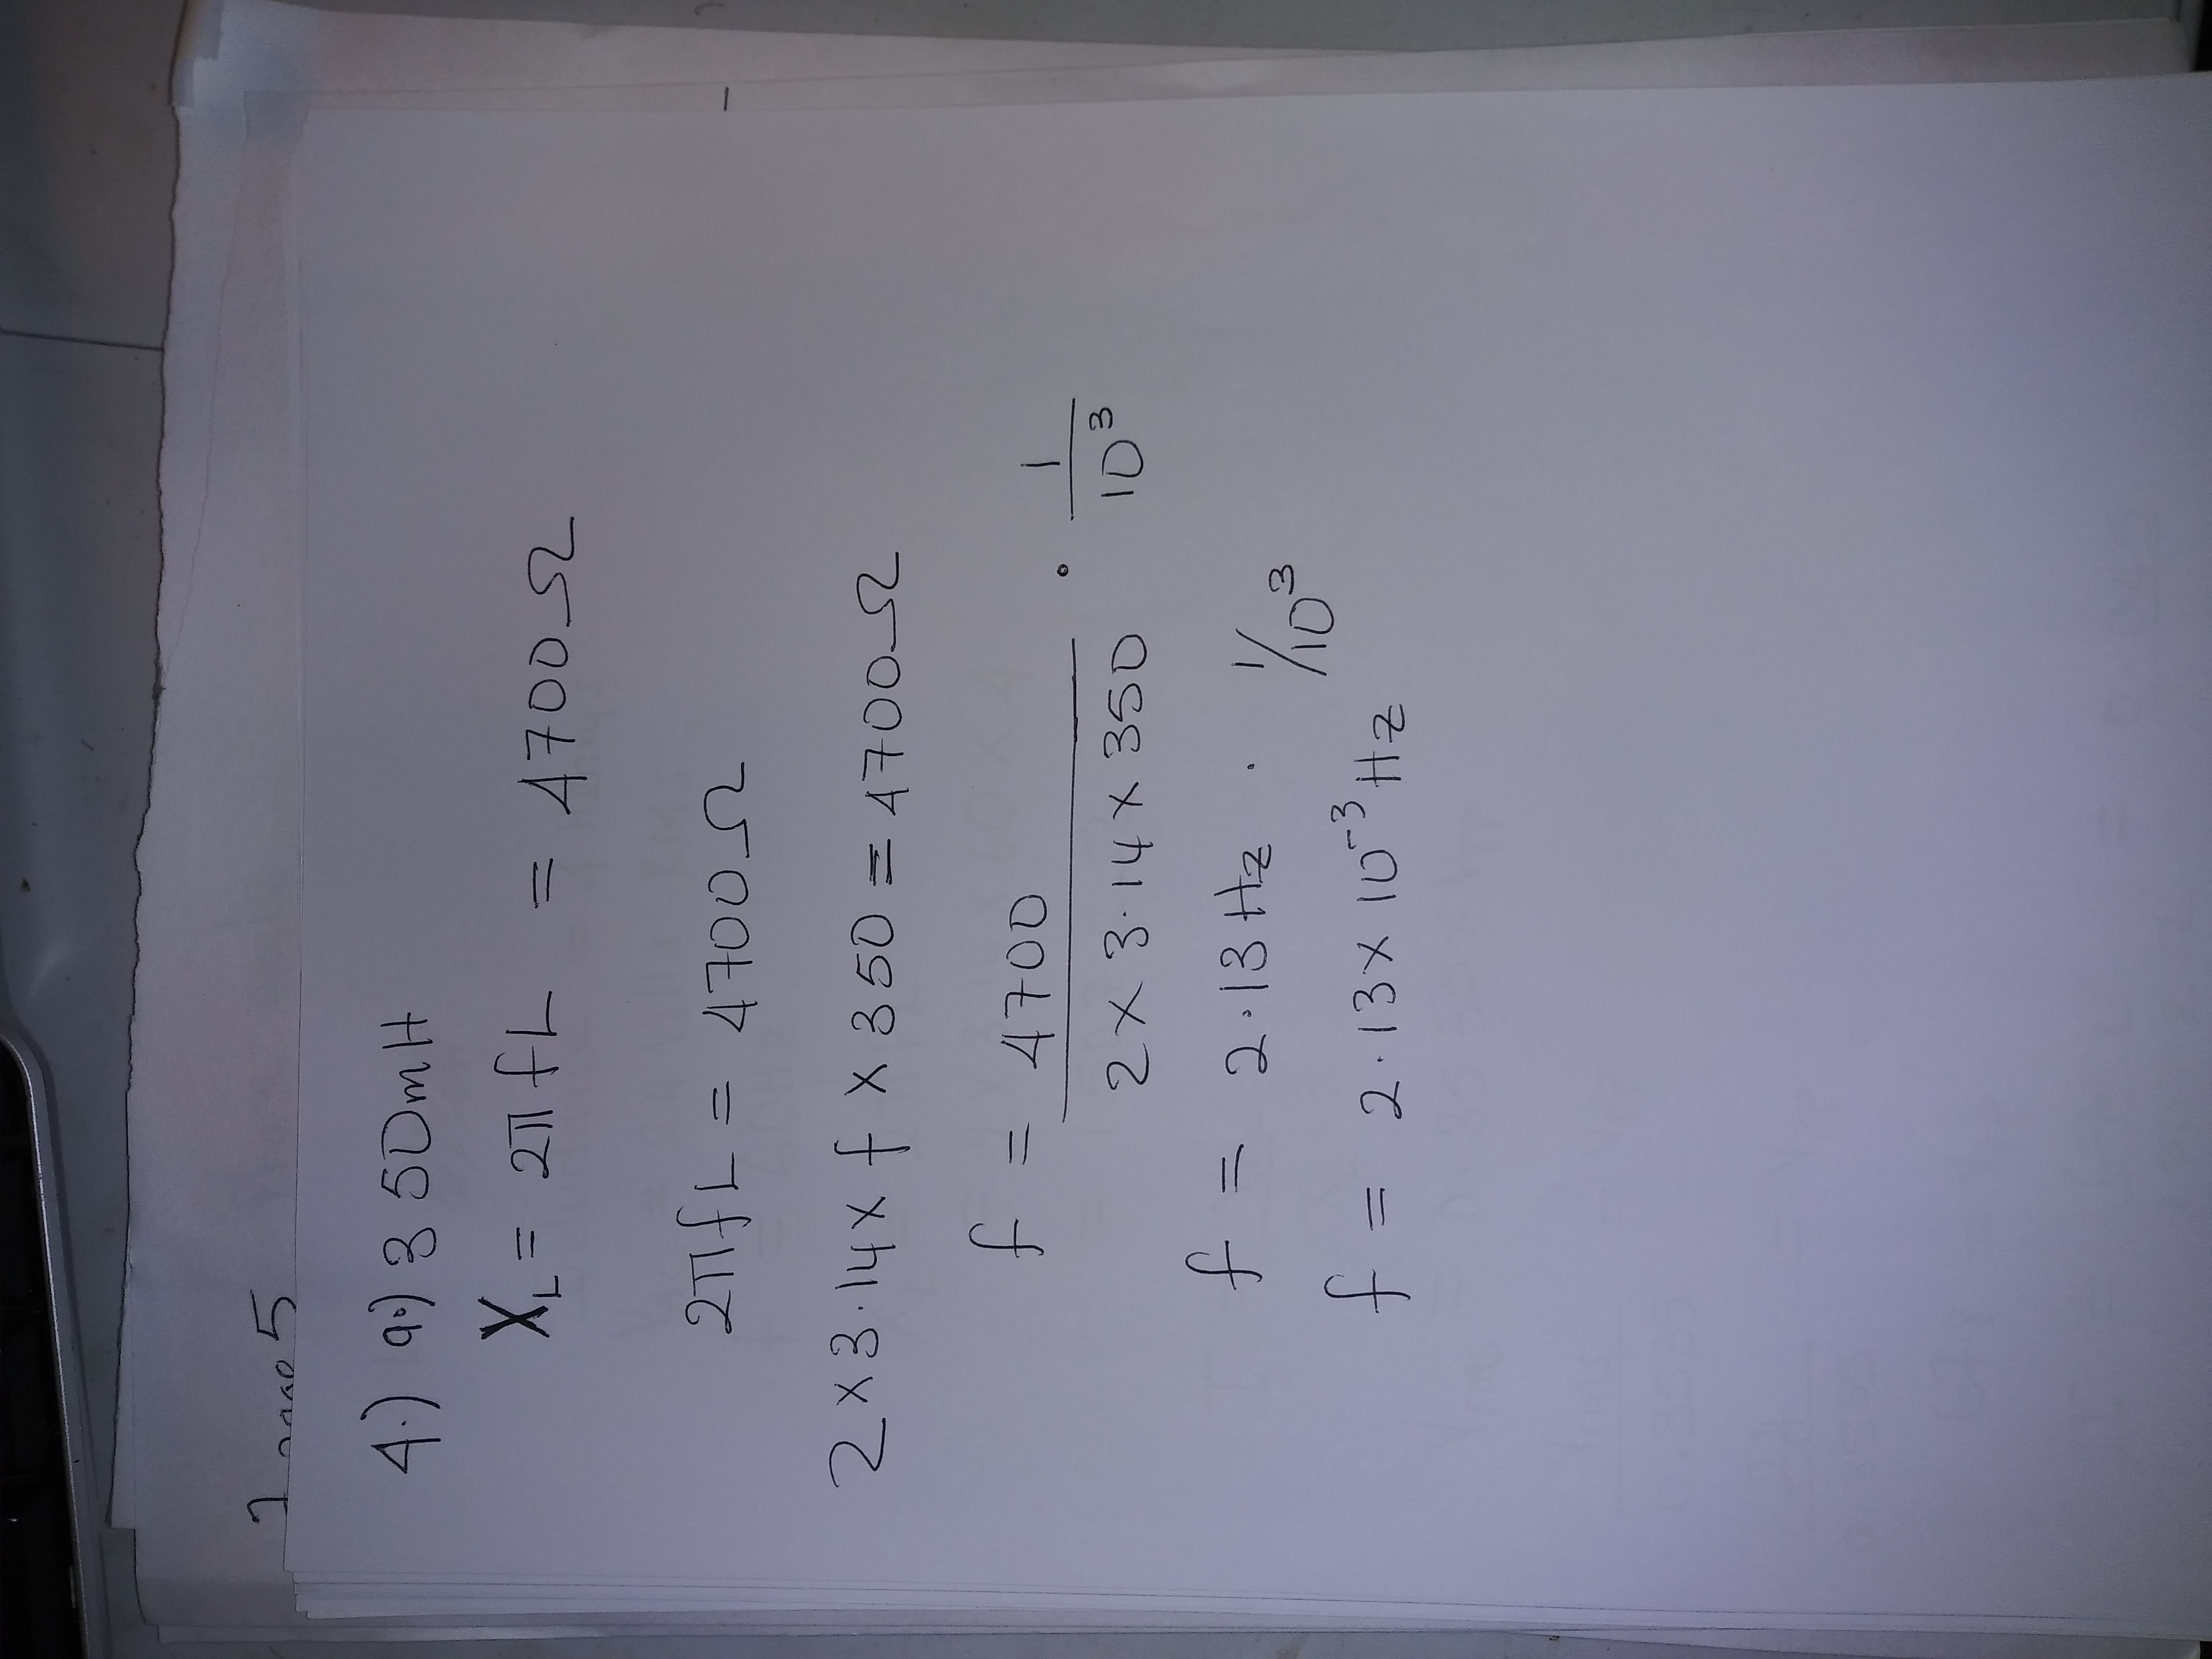 5
4.) a.) 350mH
X_L = 2πfL = 4700Ω
2πfL = 4700Ω
2×3.14× f × 350 = 4700Ω
f = 4700 / 2 × 3.14 × 350 · 1 / 10³
f = 2.13 Hz · 1/10³
f = 2.13 × 10⁻³ Hz